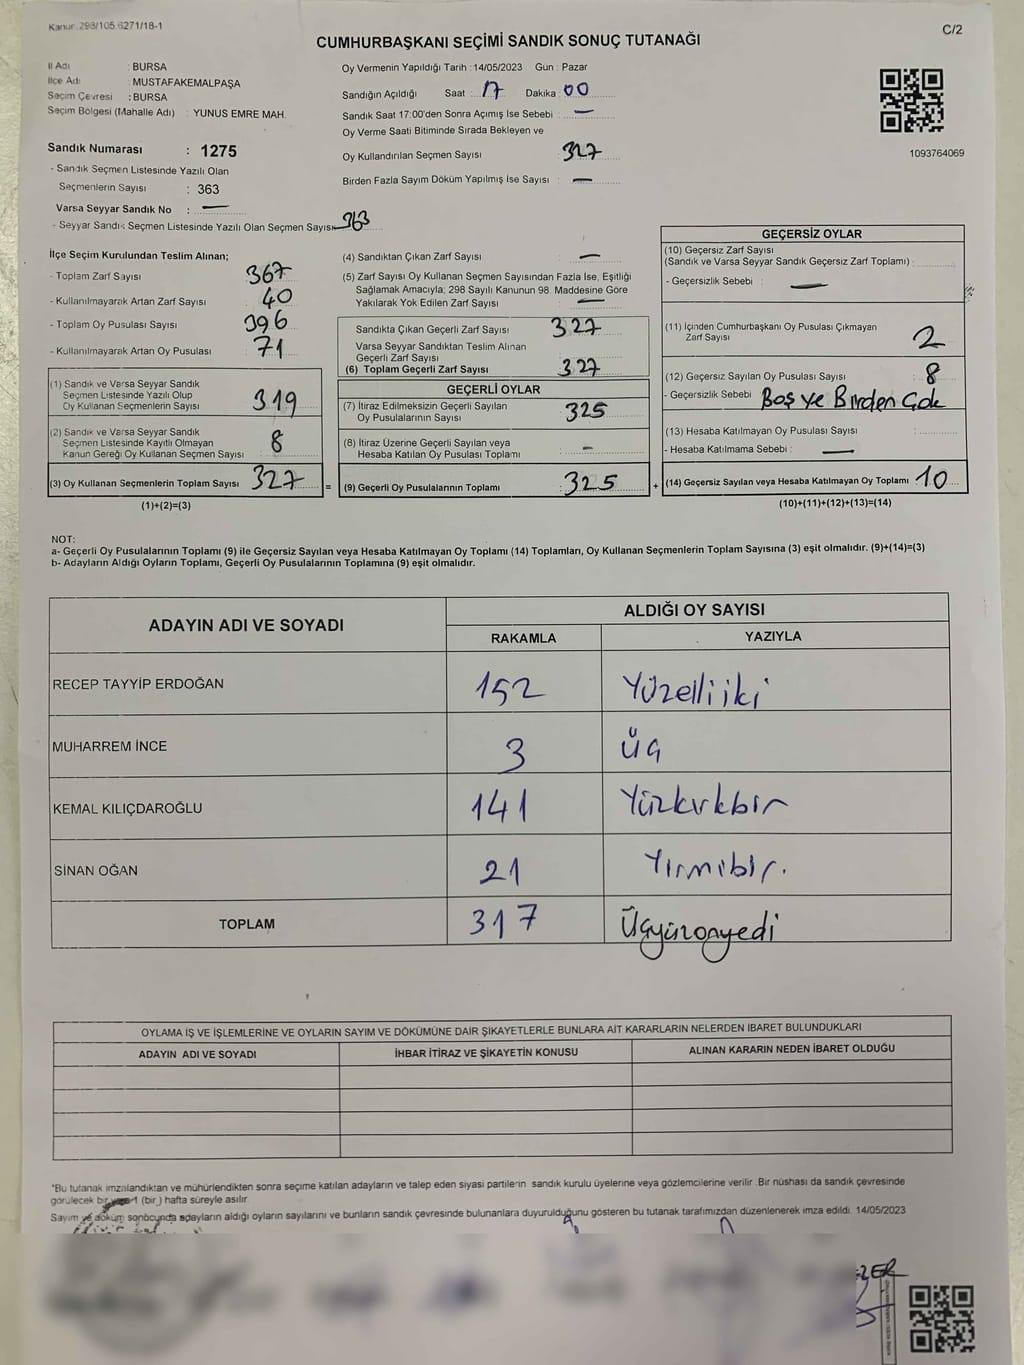 Kanun 298/105.6271/18-1
C/2
CUMHURBAŞKANI SEÇİMİ SANDIK SONUÇ TUTANAĞI
İl Adı : BURSA
İlçe Adı : MUSTAFAKEMALPAŞA
Seçim Çevresi : BURSA
Seçim Bölgesi (Mahalle Adı) : YUNUS EMRE MAH.
Sandık Numarası : 1275
- Sandık Seçmen Listesinde Yazılı Olan
Seçmenlerin Sayısı : 363
Varsa Seyyar Sandık No : —
- Seyyar Sandık Seçmen Listesinde Yazılı Olan Seçmen Sayısı 363
Oy Vermenin Yapıldığı Tarih : 14/05/2023 Gün : Pazar
Sandığın Açıldığı Saat : 17 Dakika : 00
Sandık Saat 17:00'den Sonra Açımış İse Sebebi : —
Oy Verme Saati Bitiminde Sırada Bekleyen ve
Oy Kullandırılan Seçmen Sayısı : 327
Birden Fazla Sayım Döküm Yapılmış İse Sayısı : —
1093764069
İlçe Seçim Kurulundan Teslim Alınan;
- Toplam Zarf Sayısı 367
- Kullanılmayarak Artan Zarf Sayısı 40
- Toplam Oy Pusulası Sayısı 396
- Kullanılmayarak Artan Oy Pusulası 71
(1) Sandık ve Varsa Seyyar Sandık
Seçmen Listesinde Yazılı Olup
Oy Kullanan Seçmenlerin Sayısı 319
(2) Sandık ve Varsa Seyyar Sandık
Seçmen Listesinde Kayıtlı Olmayan
Kanun Gereği Oy Kullanan Seçmen Sayısı 8
(3) Oy Kullanan Seçmenlerin Toplam Sayısı 327 =
(1)+(2)=(3)
(4) Sandıktan Çıkan Zarf Sayısı —
(5) Zarf Sayısı Oy Kullanan Seçmen Sayısından Fazla İse, Eşitliği
Sağlamak Amacıyla; 298 Sayılı Kanunun 98. Maddesine Göre
Yakılarak Yok Edilen Zarf Sayısı —
Sandıkta Çıkan Geçerli Zarf Sayısı 327
Varsa Seyyar Sandıktan Teslim Alınan
Geçerli Zarf Sayısı
(6) Toplam Geçerli Zarf Sayısı 327
GEÇERLİ OYLAR
(7) İtiraz Edilmeksizin Geçerli Sayılan
Oy Pusulalarının Sayısı 325
(8) İtiraz Üzerine Geçerli Sayılan veya
Hesaba Katılan Oy Pusulası Toplamı —
(9) Geçerli Oy Pusulalarının Toplamı 325 +
GEÇERSİZ OYLAR
(10) Geçersiz Zarf Sayısı
(Sandık ve Varsa Seyyar Sandık Geçersiz Zarf Toplamı) :
- Geçersizlik Sebebi : —
(11) İçinden Cumhurbaşkanı Oy Pusulası Çıkmayan
Zarf Sayısı 2
(12) Geçersiz Sayılan Oy Pusulası Sayısı : 8
- Geçersizlik Sebebi : Boş ve Birden Çok
(13) Hesaba Katılmayan Oy Pusulası Sayısı :
- Hesaba Katılmama Sebebi : —
(14) Geçersiz Sayılan veya Hesaba Katılmayan Oy Toplamı 10
(10)+(11)+(12)+(13)=(14)
NOT:
a- Geçerli Oy Pusulalarının Toplamı (9) ile Geçersiz Sayılan veya Hesaba Katılmayan Oy Toplamı (14) Toplamları, Oy Kullanan Seçmenlerin Toplam Sayısına (3) eşit olmalıdır. (9)+(14)=(3)
b- Adayların Aldığı Oyların Toplamı, Geçerli Oy Pusulalarının Toplamına (9) eşit olmalıdır.
ADAYIN ADI VE SOYADI ALDIĞI OY SAYISI
RAKAMLA YAZIYLA
RECEP TAYYİP ERDOĞAN 152 Yüzelliiki
MUHARREM İNCE 3 Üç
KEMAL KILIÇDAROĞLU 141 Yüzkırkbir
SİNAN OĞAN 21 Yirmibir.
TOPLAM 317 Üçyüzonyedi
OYLAMA İŞ VE İŞLEMLERİNE VE OYLARIN SAYIM VE DÖKÜMÜNE DAİR ŞİKAYETLERLE BUNLARA AİT KARARLARIN NELERDEN İBARET BULUNDUKLARI
ADAYIN ADI VE SOYADI İHBAR İTİRAZ VE ŞİKAYETİN KONUSU ALINAN KARARIN NEDEN İBARET OLDUĞU
*Bu tutanak imzalandıktan ve mühürlendikten sonra seçime katılan adayların ve talep eden siyasi partilerin sandık kurulu üyelerine veya gözlemcilerine verilir. Bir nüshası da sandık çevresinde
görülecek bir yere 1 (bir) hafta süreyle asılır.
Sayım ve döküm sonucunda adayların aldığı oyların sayılarını ve bunların sandık çevresinde bulunanlara duyurulduğunu gösteren bu tutanak tarafımızdan düzenlenerek imza edildi. 14/05/2023